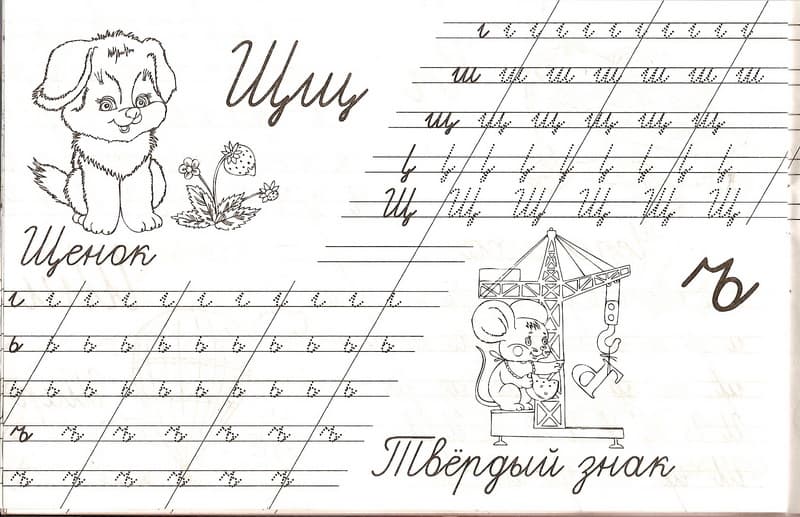 Щщ
ш ш ш ш ш ш ш
щ щ щ щ щ щ
Щ Щ Щ Щ Щ Щ
Щенок
ь ь ь ь ь ь ь ь ь ь
ь ь ь ь ь ь ь ь ь
ъ ъ ъ ъ ъ ъ ъ
ъ ъ ъ ъ ъ ъ ъ
ъ
Твёрдый знак